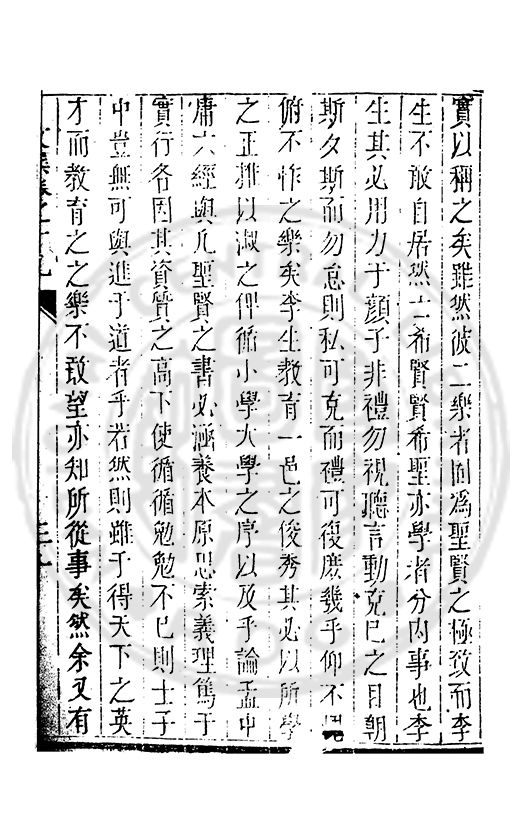 實以稱之矣雖然彼二樂者固爲聖賢之極致而李
生不敢自居然士希賢賢希聖亦學者分內事也李
生其必用力于顏子非禮勿視聽言動克己之目朝
斯夕斯而勿怠則私可克而禮可復庶幾乎仰不愧
俯不怍之樂矣李生教育一邑之俊秀其必以所學
之正推以淑之俾循小學大學之序以及乎論孟中
庸六經與凡聖賢之書必涵養本原思索義理篤于
實行各因其資質之高下使循循勉勉不已則士子
中豈無可與進于道者乎若然則雖于得天下之英
才而教育之之樂不敢望亦知所從事矣然余又有